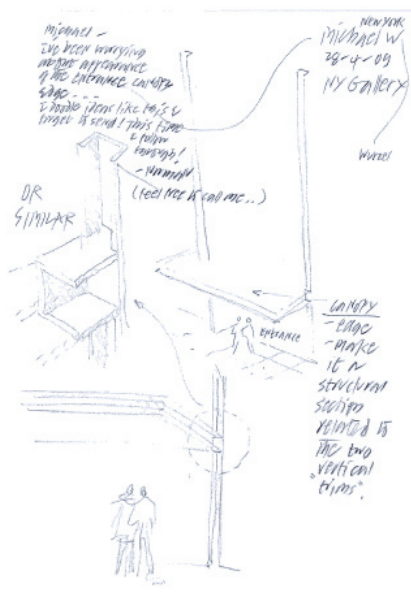 Michael -
I've been worrying
about appearance
of the entrance canopy
edge - - -
I doodle ideas like this &
forget to send! This time
I follow
through!
- Norman
(feel free to call me..)
New York
Michael W
28-4-09
NY Gallery
OR
SIMILAR
ENTRANCE
CANOPY
- edge
- make
it a
structural
section
related to
the two
vertical
"trims".